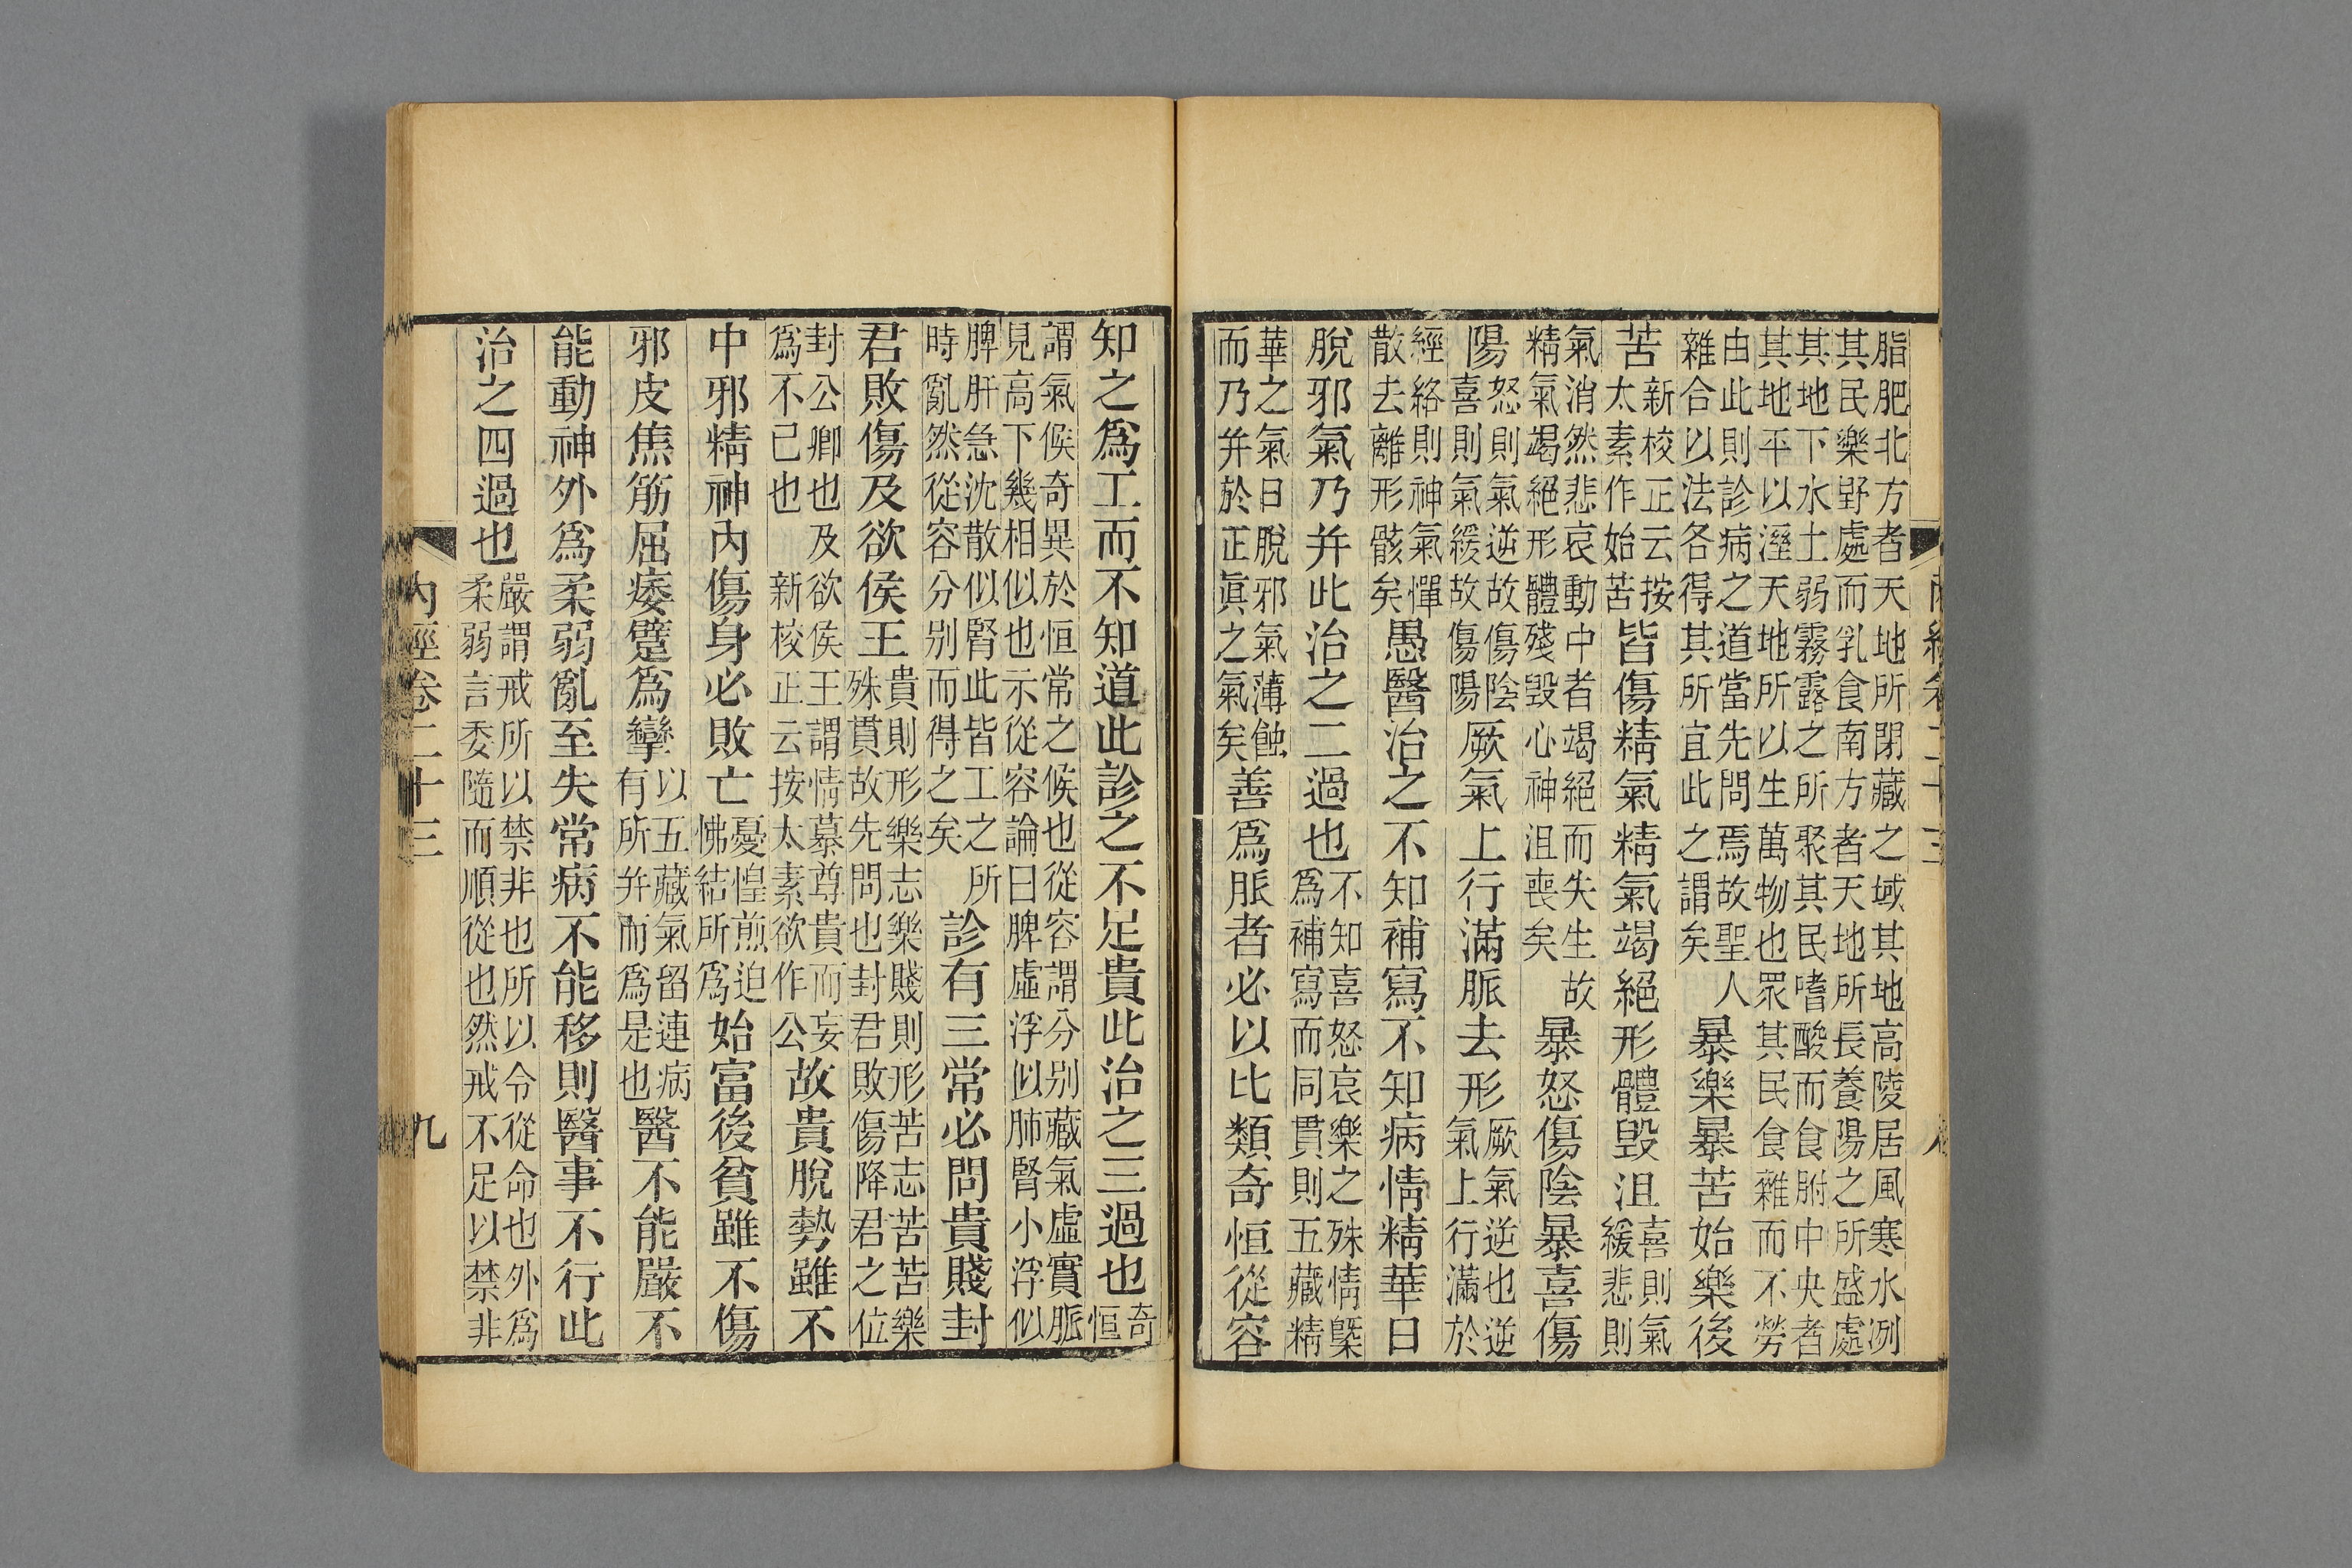 脂肥北方者天地所閉藏之域其地高陵居風寒水冽
其民樂野處而乳食南方者天地所長養陽之所盛處
其地下水土弱霧露之所聚其民嗜酸而食胕中央者
其地平以溼天地所以生萬物也眾其民食雜而不勞
由此則診病之道當先問焉故聖人
雜合以法各得其所宜此之謂矣
暴樂暴苦始樂後
苦新校正云按太素作始苦皆傷精氣精氣竭絕形體毀沮喜則氣緩悲則
氣消然悲哀動中者竭絕而失生故
精氣竭絕形體殘毀心神沮喪矣
暴怒傷陰暴喜傷
陽怒則氣逆故傷陰喜則氣緩故傷陽厥氣上行滿脈去形厥氣逆也逆氣上行滿於
經絡則神氣憚散去離形骸矣愚醫治之不知補寫不知病情精華日
脫邪氣乃并此治之二過也不知喜怒哀樂之殊情槩爲補寫而同貫則五藏精
華之氣日脫邪氣薄蝕而乃并於正眞之氣矣善爲脈者必以比類奇恒從容
知之爲工而不知道此診之不足貴此治之三過也奇恒
謂氣候奇異於恒常之候也從容謂分别藏氣虛實脈
見高下幾相似也示從容論曰脾虛浮似肺腎小浮似
脾肝急沈散似腎此皆工之所
時亂然從容分别而得之矣
診有三常必問貴賤封
君敗傷及欲侯王貴則形樂志樂賤則形苦志苦苦樂殊貫故先問也封君敗傷降君之位
封公卿也及欲侯王謂情慕尊貴而妄
爲不已也新校正云按太素欲作公
故貴脫勢雖不
中邪精神內傷身必敗亡憂惶煎迫怫結所爲始富後貧雖不傷
邪皮焦筋屈痿躄爲攣以五藏氣留連病有所并而爲是也醫不能嚴不
能動神外爲柔弱亂至失常病不能移則醫事不行此
治之四過也嚴謂戒所以禁非也所以令從命也外爲柔弱言委隨而順從也然戒不足以禁非
內經卷二十三 九